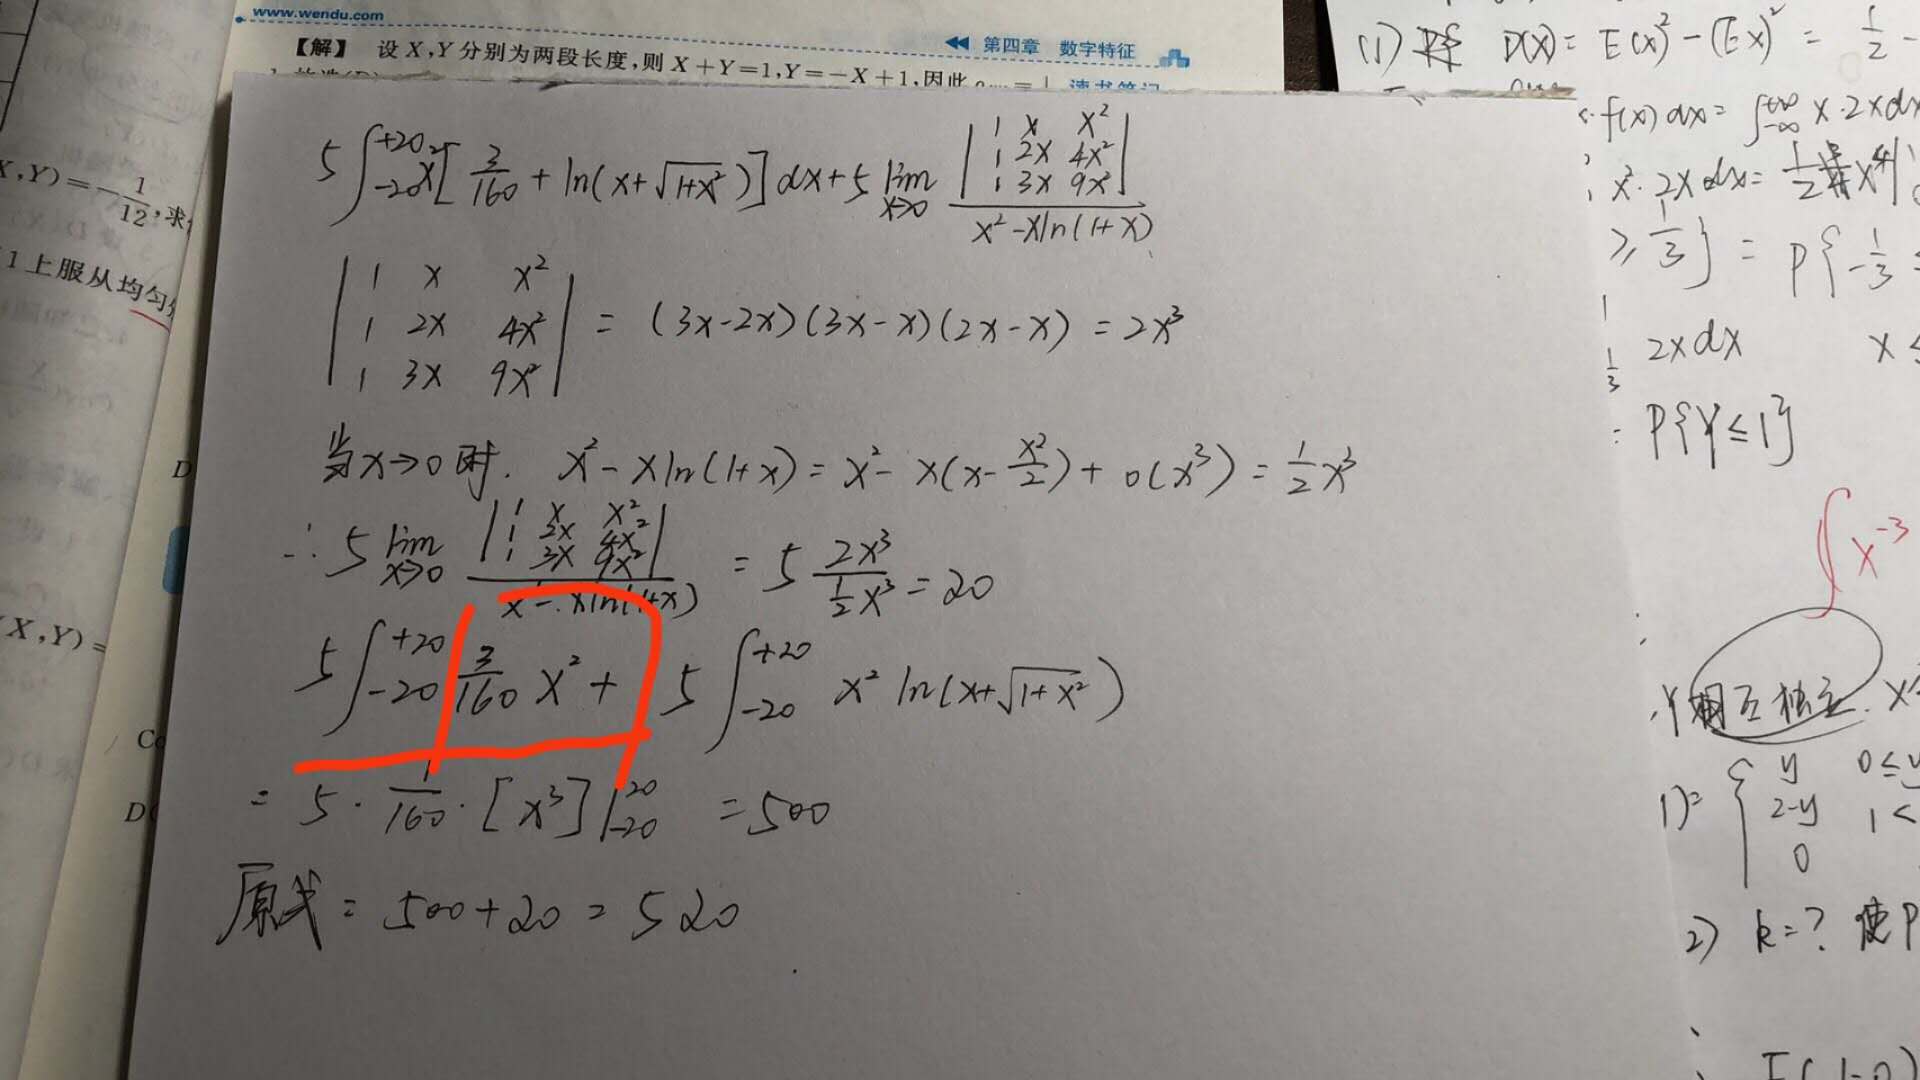 www.wendu.com
第四章 数字特征
【解】 设 X,Y 分别为两段长度,则 X+Y=1,Y=-X+1,因此
读书笔记
5∫_{-20}^{+20} x²[3/160 + ln(x+√(1+x²))]dx + 5 lim_{x→0} |1 x x²; 1 2x 4x²; 1 3x 9x²| / (x²-xln(1+x))
|1 x x²; 1 2x 4x²; 1 3x 9x²| = (3x-2x)(3x-x)(2x-x) = 2x³
当x→0时. x²-xln(1+x) = x²-x(x-x²/2)+o(x³) = 1/2 x³
∴ 5 lim_{x→0} |1 x x²; 1 2x 4x²; 1 3x 9x²| / (x²-xln(1+x)) = 5 2x³/(1/2 x³) = 20
5∫_{-20}^{+20} 3/160 x² + 5∫_{-20}^{+20} x² ln(x+√(1+x²))
= 5 · 1/160 · [x³]|_{-20}^{20} = 500
原式 = 500+20 = 520
X,Y)=-1/12,求
1上服从均匀
(X,Y)=
D
Co
D(
(1) D(X)= E(x)²-(Ex)² = 1/2 -
f(x)dx= ∫_{-∞}^{+∞} x·2xdx
x²·2xdx= 1/2 x⁴|
≥1/3} = P{-1/3
2xdx x≤
= P{Y≤1}
∫x⁻³
Y相互独立.
1)= { y 0≤y
2-y 1<
0
2) k=? 使P